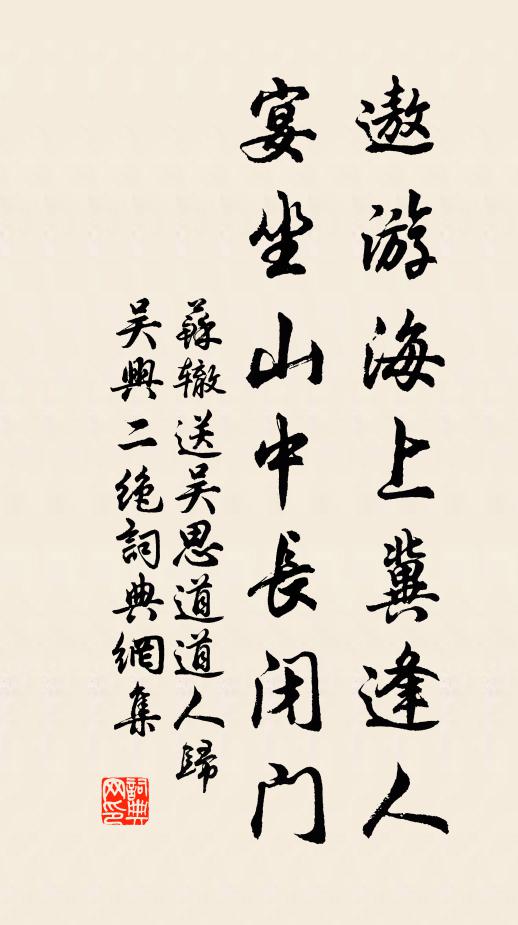 遨游海上冀逢人
宴坐山中長闭門
蘇辙送吴思道道人歸
吴興二绝詞典網集
詞典网印